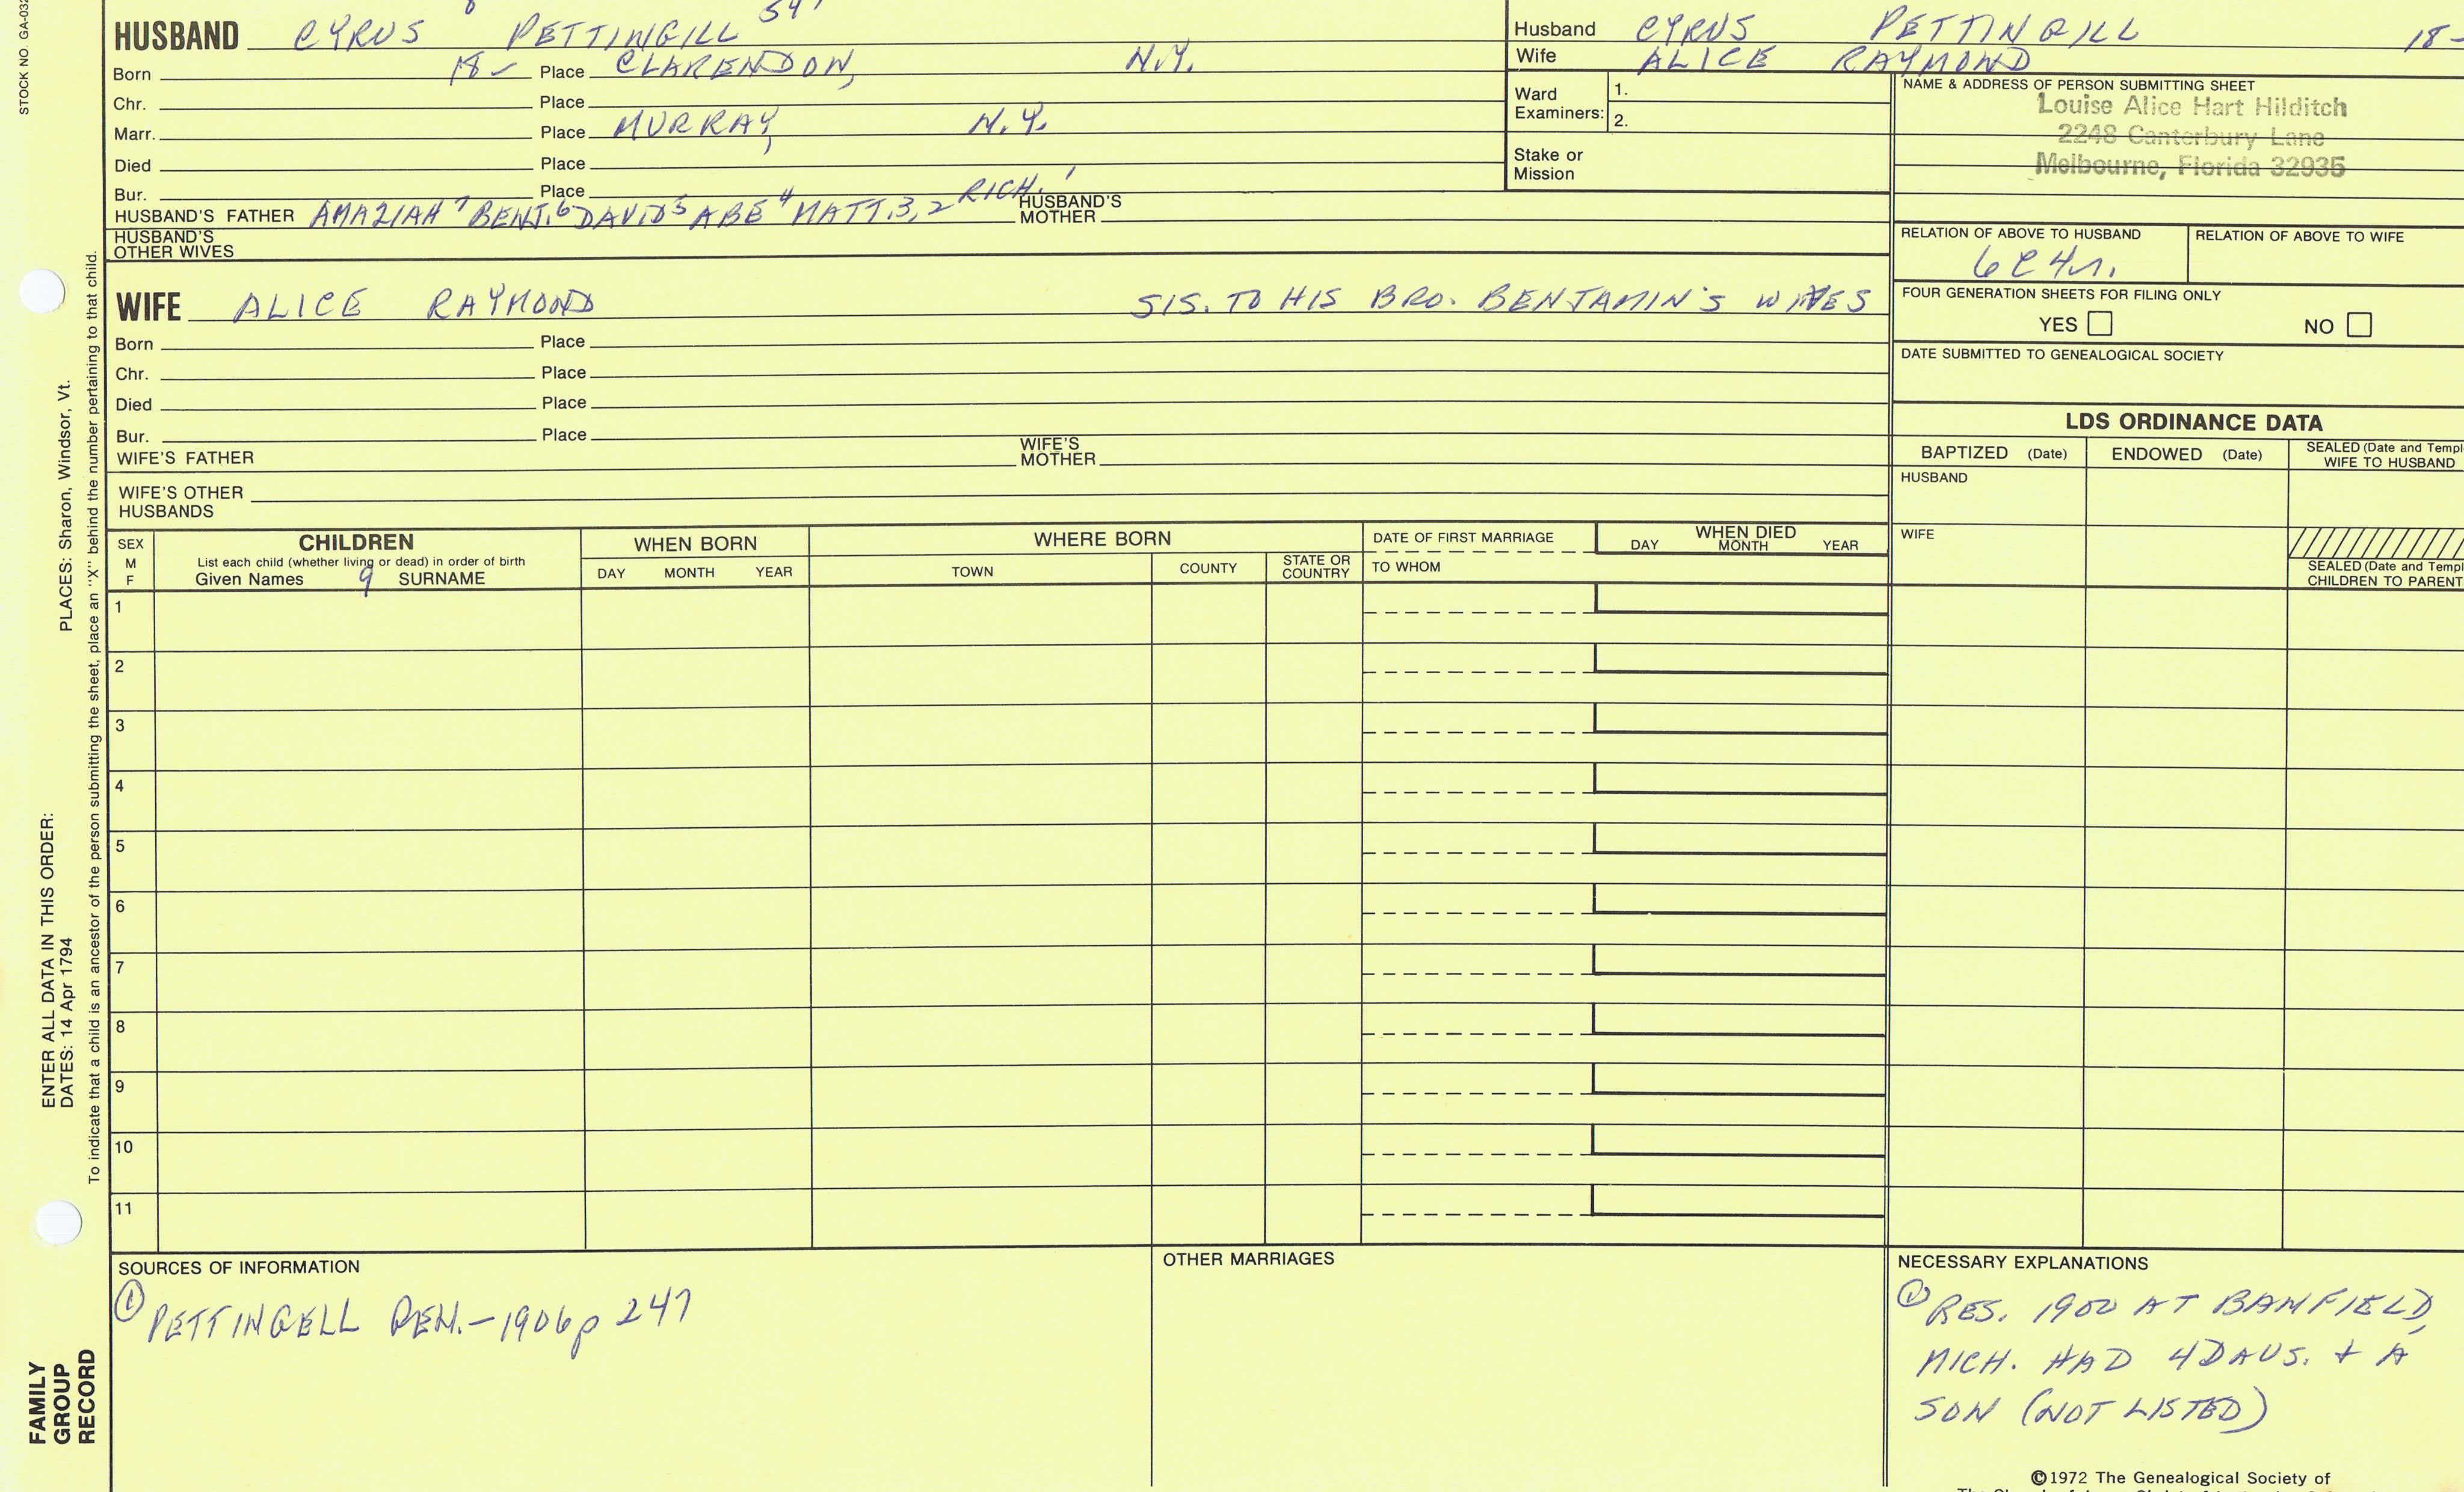 STOCK NO. GA-032
8 54'
HUSBAND CYRUS PETTINGILL
Born 18- Place CLARENDON, N.Y.
Chr. Place
Marr. Place MURRAY, N.Y.
Died Place
Bur. Place
HUSBAND'S FATHER AMAZIAH 7 BENJ. 6 DAVID 5 ABE 4 MATT. 3, 2 RICH. 1 HUSBAND'S MOTHER
HUSBAND'S OTHER WIVES
WIFE ALICE RAYMOND SIS. TO HIS BRO. BENJAMIN'S WIVES
Born Place
Chr. Place
Died Place
Bur. Place
WIFE'S FATHER WIFE'S MOTHER
WIFE'S OTHER HUSBANDS
Husband CYRUS PETTINGILL 18-
Wife ALICE RAYMOND
Ward Examiners: 1.
2.
Stake or Mission
NAME & ADDRESS OF PERSON SUBMITTING SHEET
Louise Alice Hart Hilditch
2248 Canterbury Lane
Melbourne, Florida 32935
RELATION OF ABOVE TO HUSBAND
RELATION OF ABOVE TO WIFE
6C4r.
FOUR GENERATION SHEETS FOR FILING ONLY
YES NO
DATE SUBMITTED TO GENEALOGICAL SOCIETY
LDS ORDINANCE DATA
BAPTIZED (Date) ENDOWED (Date) SEALED (Date and Templ
WIFE TO HUSBAND
HUSBAND
WIFE
SEALED (Date and Templ
CHILDREN TO PARENT
SEX
M
F
CHILDREN
List each child (whether living or dead) in order of birth
Given Names 9 SURNAME
WHEN BORN
DAY MONTH YEAR
WHERE BORN
TOWN COUNTY STATE OR COUNTRY
DATE OF FIRST MARRIAGE
TO WHOM
WHEN DIED
DAY MONTH YEAR
1
2
3
4
5
6
7
8
9
10
11
SOURCES OF INFORMATION
① PETTINGELL GEN.-1906 p 247
OTHER MARRIAGES
NECESSARY EXPLANATIONS
① RES. 1900 AT BAMFIELD,
MICH. HAD 4 DAUS. + A
SON (NOT LISTED)
©1972 The Genealogical Society of
PLACES: Sharon, Windsor, Vt.
ENTER ALL DATA IN THIS ORDER:
DATES: 14 Apr 1794
To indicate that a child is an ancestor of the person submitting the sheet, place an "X" behind the number pertaining to that child.
FAMILY
GROUP
RECORD